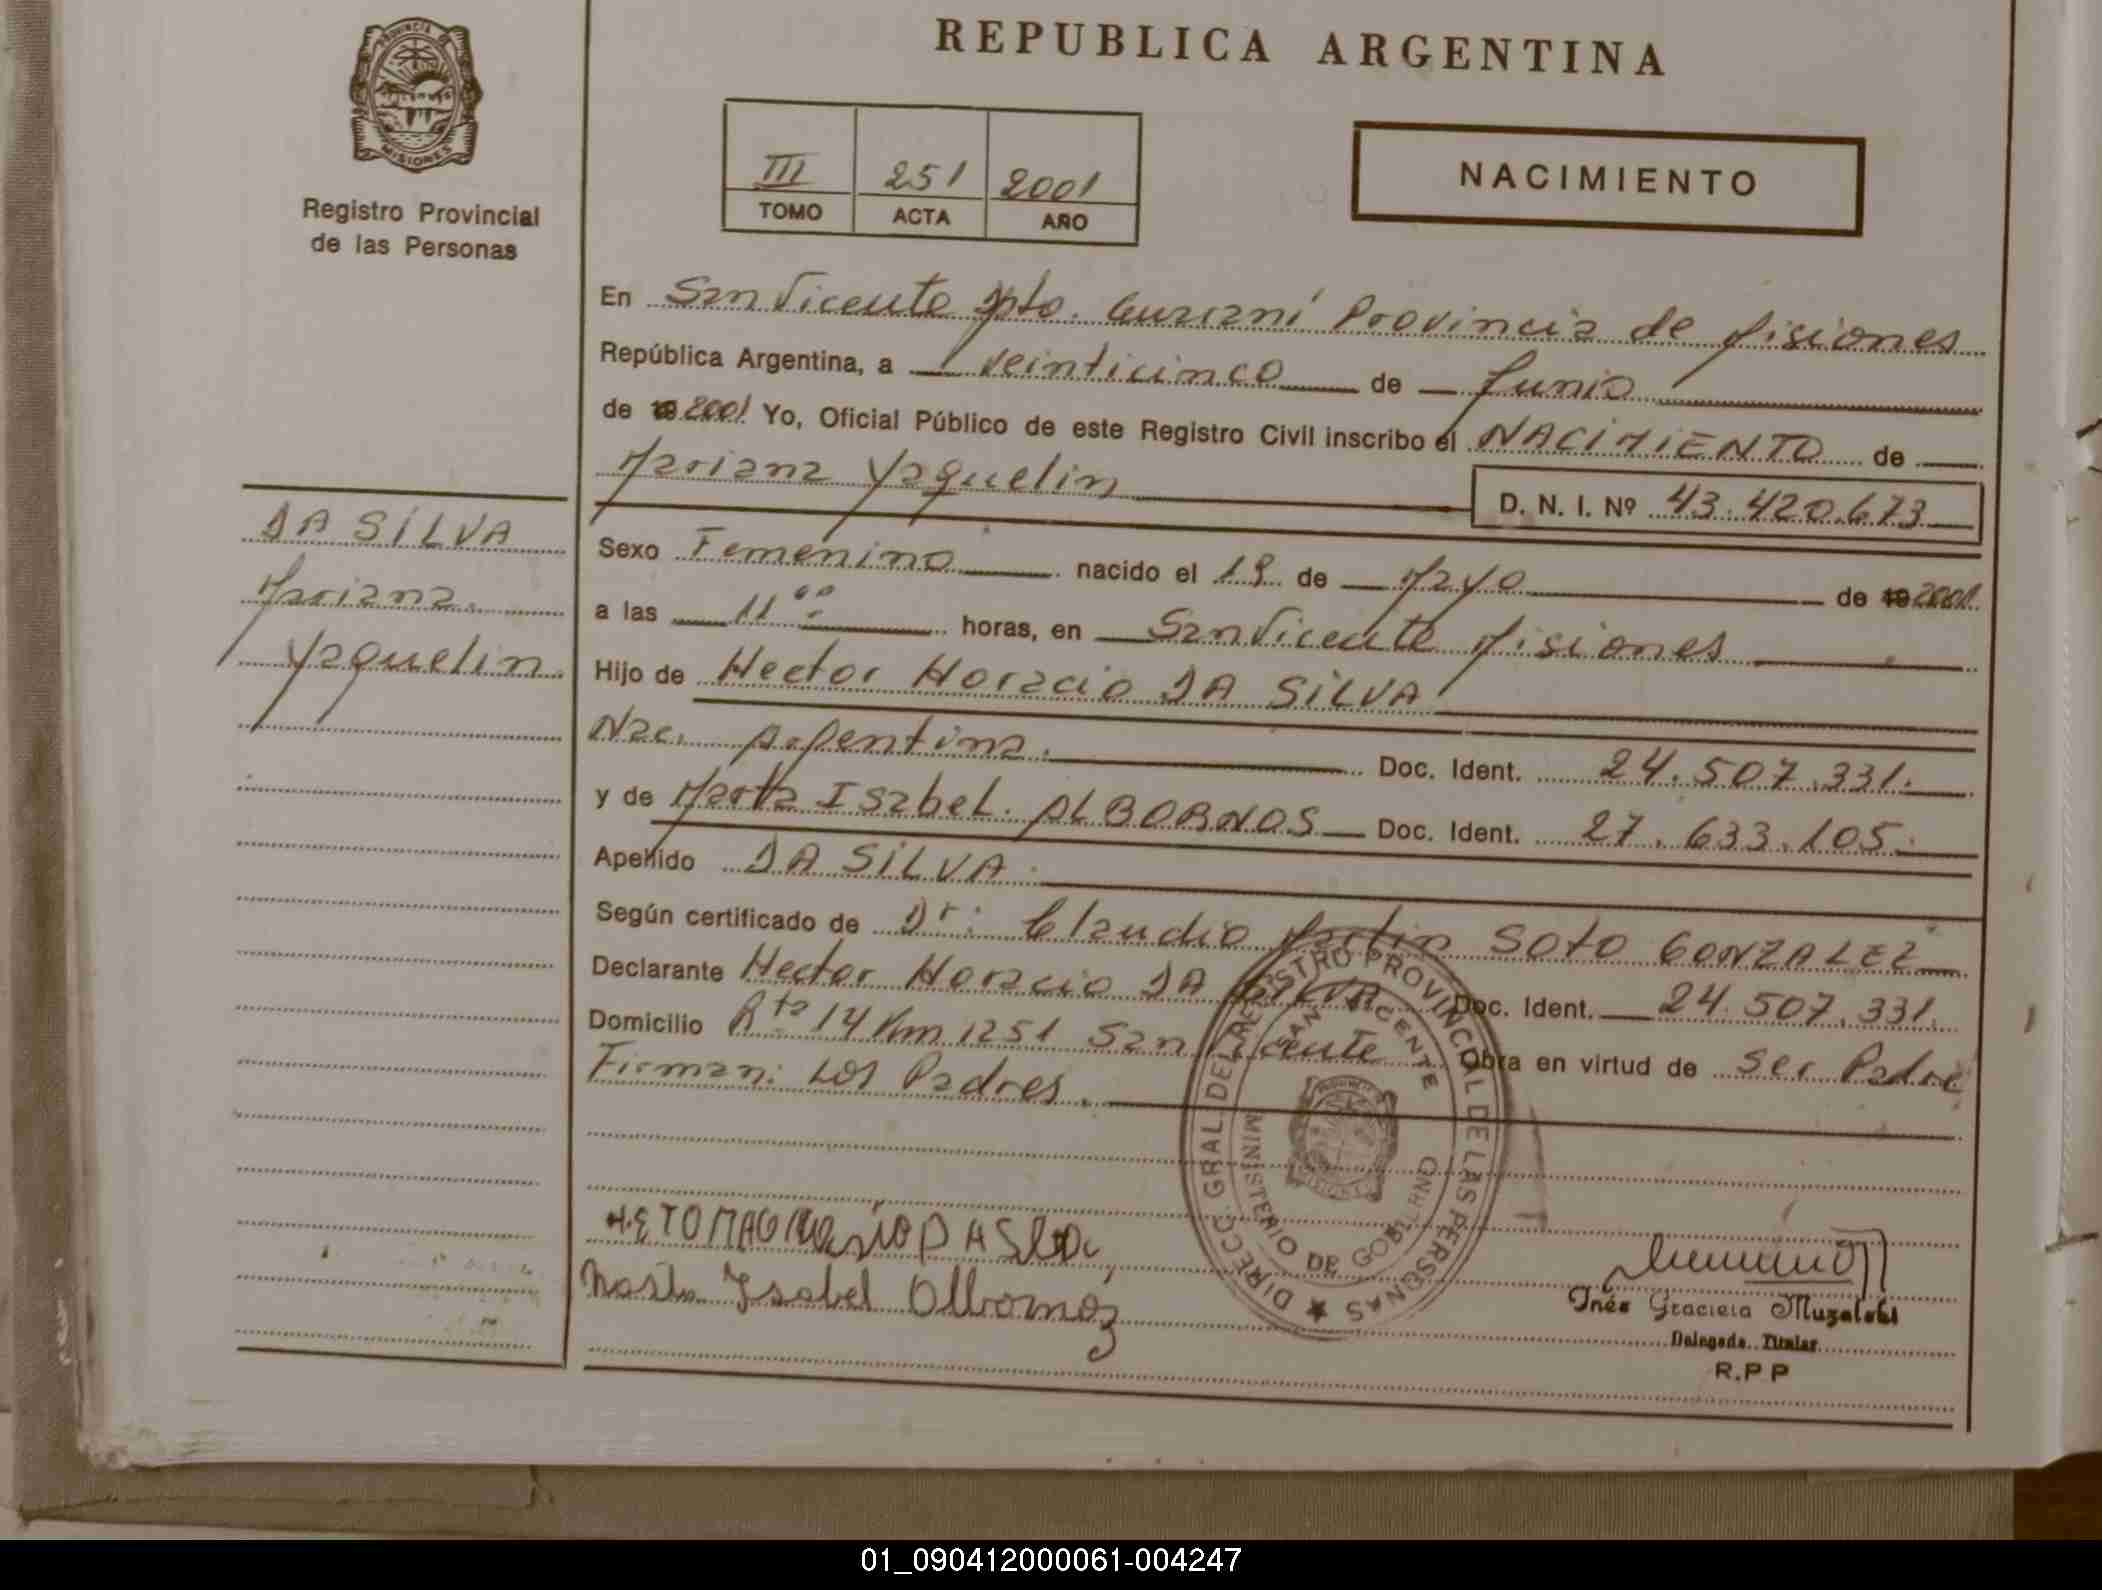 REPUBLICA ARGENTINA
PROVINCIA DE
MISIONES
Registro Provincial
de las Personas
III 251 2001
TOMO ACTA AÑO
NACIMIENTO
En San Vicente Dpto. Guaraní Provincia de Misiones
República Argentina, a veinticinco de Junio
de 19 2001 Yo, Oficial Público de este Registro Civil inscribo el NACIMIENTO de
Mariana Yaquelin
D. N. I. Nº 43.420.673
DA SILVA
Mariana
Yaquelin
Sexo Femenino nacido el 19 de Mayo de 19 2001
a las 11 00 horas, en San Vicente Misiones
Hijo de Hector Horacio DA SILVA
Nac. Argentina. Doc. Ident. 24.507.331.
y de Marta Isabel. ALBORNOS Doc. Ident. 27.633.105.
Apellido DA SILVA
Según certificado de Dr: Claudio Martin SOTO GONZALEZ
Declarante Hector Horacio DA SILVA Doc. Ident. 24.507.331.
Domicilio Rta 14 Km 1251 San Vicente Obra en virtud de ser Padre
Firman: Los Padres.
DIRECC. GRAL. DEL REGISTRO PROVINCIAL DE LAS PERSONAS
SAN VICENTE
MINISTERIO DE GOBIERNO
Marta Isabel Albornoz
Inés Graciela
Delegada Titular
R.P P
01_090412000061-004247